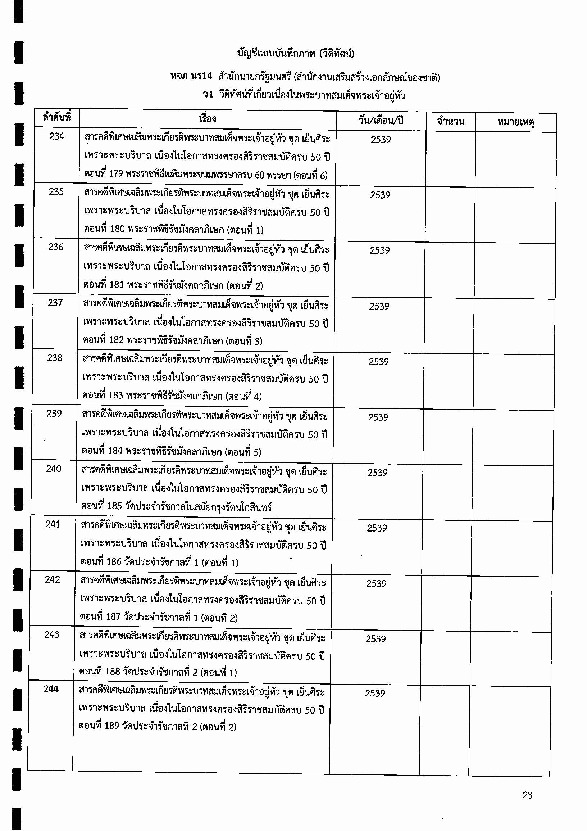 บัญชีแถบบันทึกภาพ (วีดิทัศน์)
หจภ นร14 สำนักนายกรัฐมนตรี (สำนักงานเสริมสร้างเอกลักษณ์ของชาติ)
ว1 วีดิทัศน์ที่เกี่ยวเนื่องในพระบาทสมเด็จพระเจ้าอยู่หัว
ลำดับที่ เรื่อง วัน/เดือน/ปี จำนวน หมายเหตุ
234 สารคดีพิเศษเฉลิมพระเกียรติพระบาทสมเด็จพระเจ้าอยู่หัว ชุด เย็นศิระ 2539
เพราะพระบริบาล เนื่องในโอกาสทรงครองสิริราชสมบัติครบ 50 ปี
ตอนที่ 179 พระราชพิธีเฉลิมพระชนมพรรษาครบ 60 พรรษา (ตอนที่ 6)
235 สารคดีพิเศษเฉลิมพระเกียรติพระบาทสมเด็จพระเจ้าอยู่หัว ชุด เย็นศิระ 2539
เพราะพระบริบาล เนื่องในโอกาสทรงครองสิริราชสมบัติครบ 50 ปี
ตอนที่ 180 พระราชพิธีรัชมังคลาภิเษก (ตอนที่ 1)
236 สารคดีพิเศษเฉลิมพระเกียรติพระบาทสมเด็จพระเจ้าอยู่หัว ชุด เย็นศิระ 2539
เพราะพระบริบาล เนื่องในโอกาสทรงครองสิริราชสมบัติครบ 50 ปี
ตอนที่ 181 พระราชพิธีรัชมังคลาภิเษก (ตอนที่ 2)
237 สารคดีพิเศษเฉลิมพระเกียรติพระบาทสมเด็จพระเจ้าอยู่หัว ชุด เย็นศิระ 2539
เพราะพระบริบาล เนื่องในโอกาสทรงครองสิริราชสมบัติครบ 50 ปี
ตอนที่ 182 พระราชพิธีรัชมังคลาภิเษก (ตอนที่ 3)
238 สารคดีพิเศษเฉลิมพระเกียรติพระบาทสมเด็จพระเจ้าอยู่หัว ชุด เย็นศิระ 2539
เพราะพระบริบาล เนื่องในโอกาสทรงครองสิริราชสมบัติครบ 50 ปี
ตอนที่ 183 พระราชพิธีรัชมังคลาภิเษก (ตอนที่ 4)
239 สารคดีพิเศษเฉลิมพระเกียรติพระบาทสมเด็จพระเจ้าอยู่หัว ชุด เย็นศิระ 2539
เพราะพระบริบาล เนื่องในโอกาสทรงครองสิริราชสมบัติครบ 50 ปี
ตอนที่ 184 พระราชพิธีรัชมังคลาภิเษก (ตอนที่ 5)
240 สารคดีพิเศษเฉลิมพระเกียรติพระบาทสมเด็จพระเจ้าอยู่หัว ชุด เย็นศิระ 2539
เพราะพระบริบาล เนื่องในโอกาสทรงครองสิริราชสมบัติครบ 50 ปี
ตอนที่ 185 วัดประจำรัชกาลในสมัยกรุงรัตนโกสินทร์
241 สารคดีพิเศษเฉลิมพระเกียรติพระบาทสมเด็จพระเจ้าอยู่หัว ชุด เย็นศิระ 2539
เพราะพระบริบาล เนื่องในโอกาสทรงครองสิริราชสมบัติครบ 50 ปี
ตอนที่ 186 วัดประจำรัชกาลที่ 1 (ตอนที่ 1)
242 สารคดีพิเศษเฉลิมพระเกียรติพระบาทสมเด็จพระเจ้าอยู่หัว ชุด เย็นศิระ 2539
เพราะพระบริบาล เนื่องในโอกาสทรงครองสิริราชสมบัติครบ 50 ปี
ตอนที่ 187 วัดประจำรัชกาลที่ 1 (ตอนที่ 2)
243 สารคดีพิเศษเฉลิมพระเกียรติพระบาทสมเด็จพระเจ้าอยู่หัว ชุด เย็นศิระ 2539
เพราะพระบริบาล เนื่องในโอกาสทรงครองสิริราชสมบัติครบ 50 ปี
ตอนที่ 188 วัดประจำรัชกาลที่ 2 (ตอนที่ 1)
244 สารคดีพิเศษเฉลิมพระเกียรติพระบาทสมเด็จพระเจ้าอยู่หัว ชุด เย็นศิระ 2539
เพราะพระบริบาล เนื่องในโอกาสทรงครองสิริราชสมบัติครบ 50 ปี
ตอนที่ 189 วัดประจำรัชกาลที่ 2 (ตอนที่ 2)
23